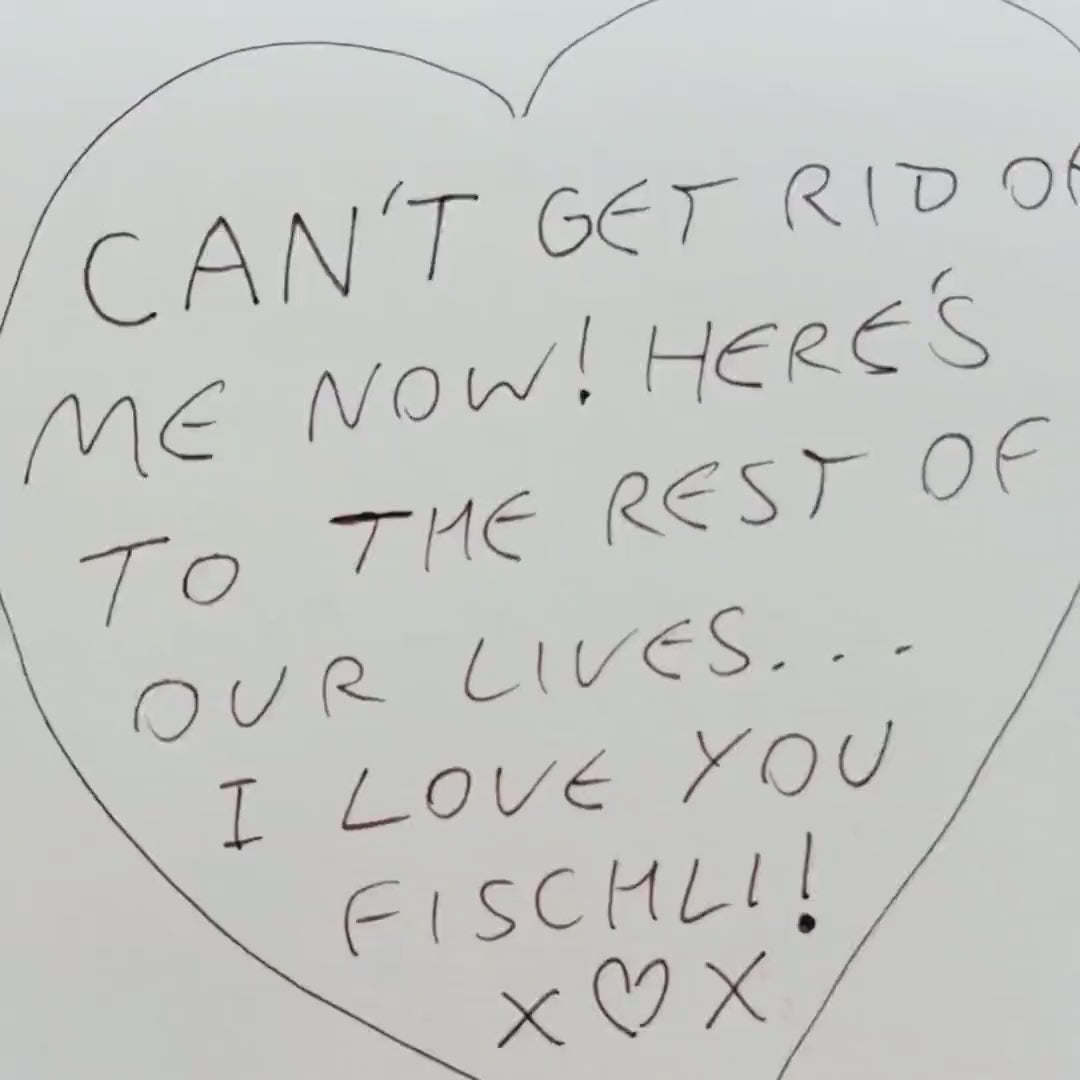 CAN'T GET RID OF
ME NOW! HERE'S
TO THE REST OF
OUR LIVES...
I LOVE YOU
FISCHLI!
X♡X